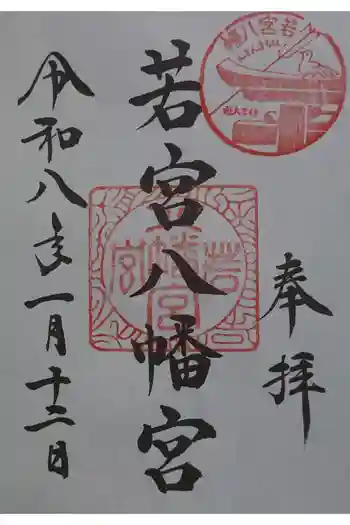 奉拝
若宮八幡宮
令和八年一月十二日
若宮八幡
若宮八幡宮